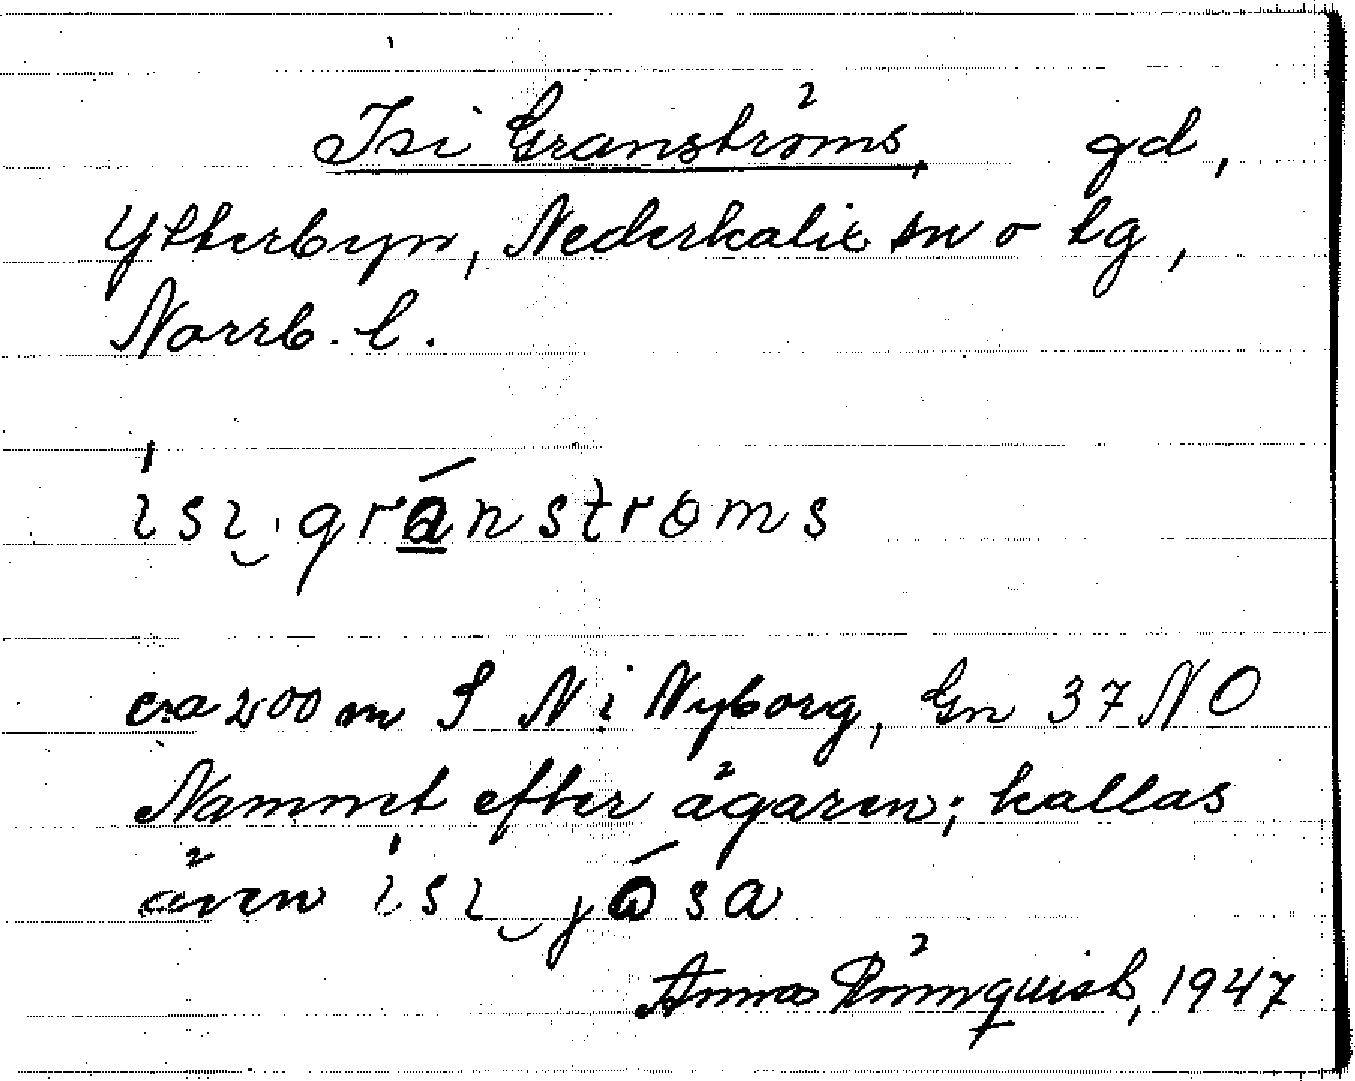 Isi Granströms, gd,
Ytterbyn, Nederkalix sn o tg,
Norrb. l.
ısı gránstrøms
ca 200 m S N i Nyborg, Gn 37 NO
Namnet efter ägaren; kallas
även ısı jósa
Anna Rönnquist, 1947